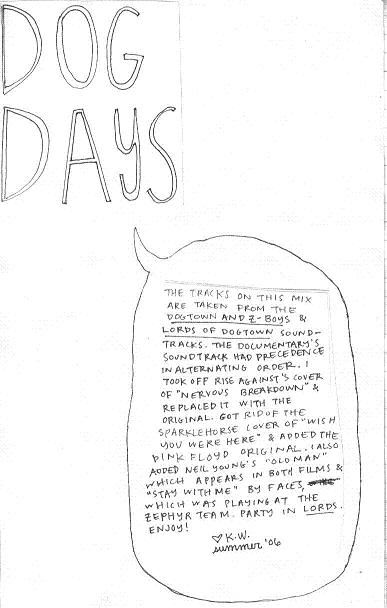 DOG
DAYS
THE TRACKS ON THIS MIX
ARE TAKEN FROM THE
DOGTOWN AND Z-BOYS &
LORDS OF DOGTOWN SOUND-
TRACKS. THE DOCUMENTARY'S
SOUNDTRACK HAD PRECEDENCE
IN ALTERNATING ORDER. I
TOOK OFF RISE AGAINST'S COVER
OF "NERVOUS BREAKDOWN" &
REPLACED IT WITH THE
ORIGINAL. GOT RID OF THE
SPARKLEHORSE COVER OF "WISH
YOU WERE HERE" & ADDED THE
PINK FLOYD ORIGINAL. I ALSO
ADDED NEIL YOUNG'S "OLD MAN"
WHICH APPEARS IN BOTH FILMS &
"STAY WITH ME" BY FACES,
WHICH WAS PLAYING AT THE
ZEPHYR TEAM. PARTY IN LORDS.
ENJOY!
♡ K.W.
summer '06